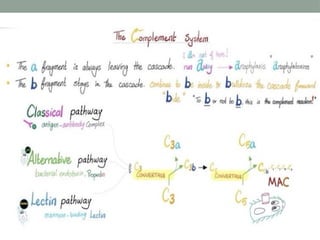 The Complement System
(I am out of here!)
• The a fragment is always leaving the cascade. run away → anaphylaxis "anaphylatoxins"
• The b fragment stays in the cascade. continue to be inside to bulldoze the cascade forward
"b side" "To b or not to b, this is the complement resident!"
Classical pathway
antigen-antibody Complex
Alternative pathway
bacterial endotoxin, Properdin
Lectin pathway
mannose-binding Lectin
C3a
C5a
C3 CONVERTASE
C3b
C5 CONVERTASE
C5b
C3
C5
MAC